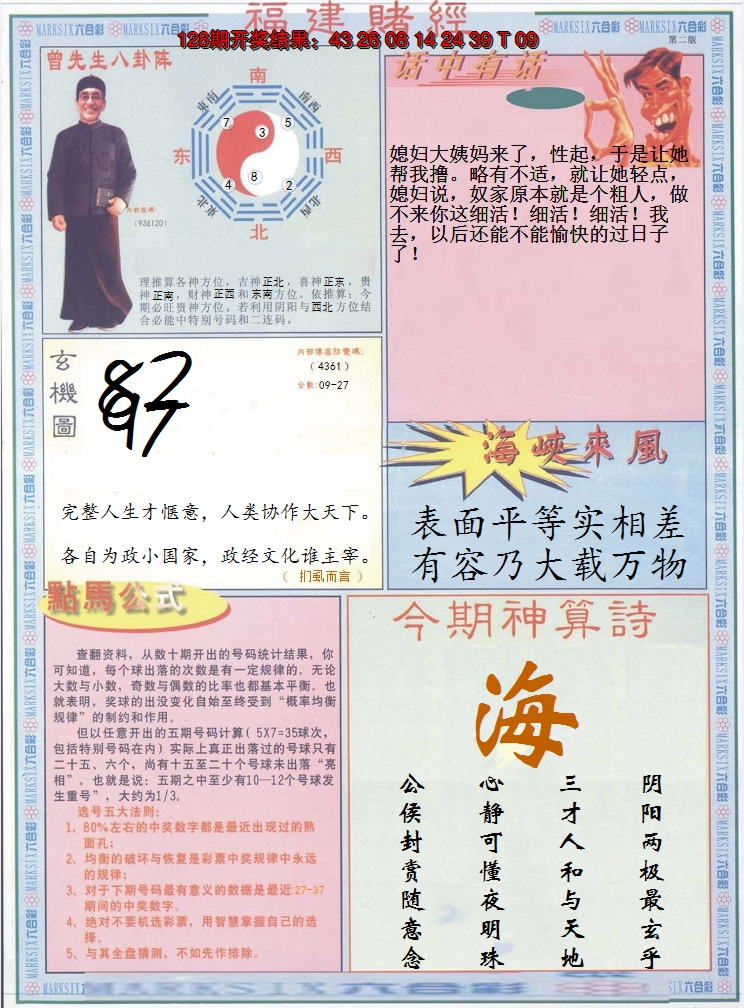 福建賭經
128期开奖结果：43 26 08 14 24 39 T 09
第二版
MARKSIX六合彩
曾先生八卦阵
南
东南
南西
7
5
3
东
西
8
4
2
东北
北西
北
内部密碼:
(936120)
理推算各神方位，吉神正北，喜神正东，贵
神正南，财神正西和东南方位。依推算：今
期必旺贵神方位。若利用阴阳与西北方位结
合必能中特别号码和二连码。
话中有话
媳妇大姨妈来了，性起，于是让她
帮我撸。略有不适，就让她轻点，
媳妇说，奴家原本就是个粗人，做
不来你这细活！细活！细活！我
去，以后还能不能愉快的过日子
了！
玄機圖
(4361)
合数:09-27
完整人生才惬意，人类协作大天下。
各自为政小国家，政经文化谁主宰。
（ 扪虱而言 ）
海峽來風
表面平等实相差
有容乃大载万物
點馬公式
查翻资料，从数十期开出的号码统计结果，你
可知道，每个球出落的次数是有一定规律的。无论
大数与小数，奇数与偶数的比率也都基本平衡。也
就表明，奖球的出没变化自始至终受到“概率均衡
规律”的制约和作用。
但以任意开出的五期号码计算( 5X7=35球次，
包括特别号码在内) 实际上真正出落过的号球只有
二十五、六个，尚有十五至二十个号球未出落“亮
相”。也就是说：五期之中至少有10—12个号球发
生重号”，大约为1/3。
选号五大法则：
1、80%左右的中奖数字都是最近出现过的熟
面孔；
2、均衡的破坏与恢复是彩票中奖规律中永远
的规律；
3、对于下期号码最有意义的数据是最近27-37
期间的中奖数字。
4、绝对不要机选彩票，用智慧掌握自己的选
择。
5、与其全盘猜测，不如先作排除。
今期神算詩
海
阴阳两极最玄乎
三才人和与天地
心静可懂夜明珠
公侯封赏随意念